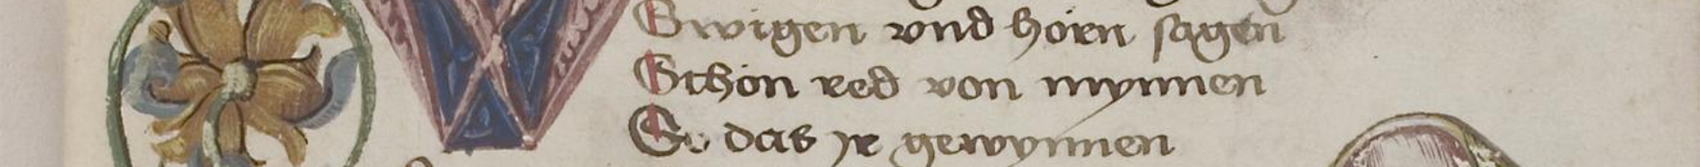 Swigen vnd horn sagen
Schon red von mynnen
So das jr gewynnen